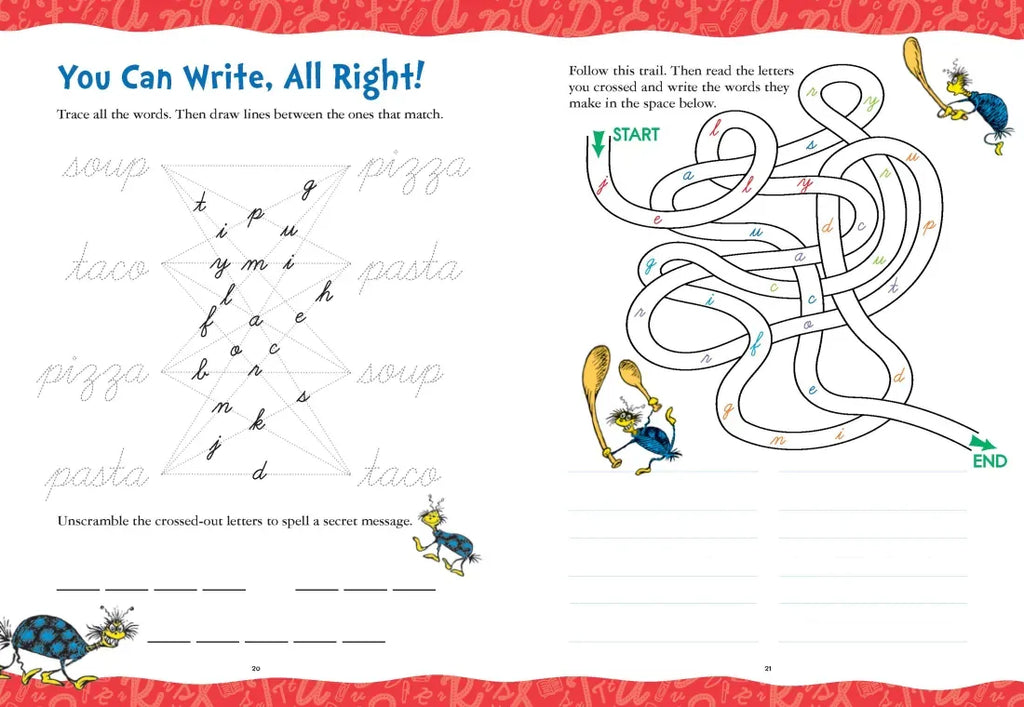 You Can Write, All Right!
Trace all the words. Then draw lines between the ones that match.
soup
pizza
g
t
p
i
u
taco
y
m
i
pasta
l
h
f
a
e
o
c
pizza
b
r
soup
n
s
k
j
pasta
d
taco
Unscramble the crossed-out letters to spell a secret message.
20
Follow this trail. Then read the letters
you crossed and write the words they
make in the space below.
START
r
y
l
s
u
a
r
j
l
y
e
u
d
c
p
g
a
u
i
c
c
t
r
o
f
r
e
d
g
n
i
END
21